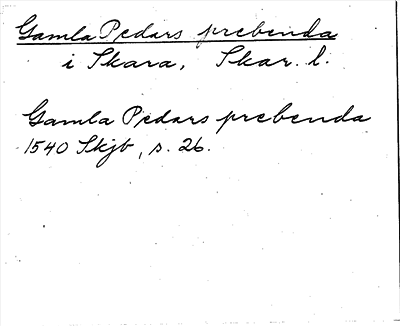 Gamla Pedars prebenda
i Skara, Skar. l.
Gamla Pedars prebenda
1540 Skjb, s. 26.